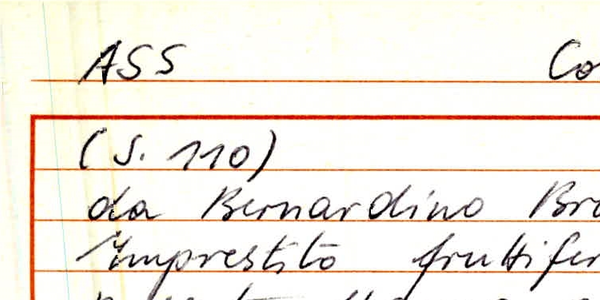 ASS Co
(S. 110)
da Bernardino Bro
Imprestito fruttifer